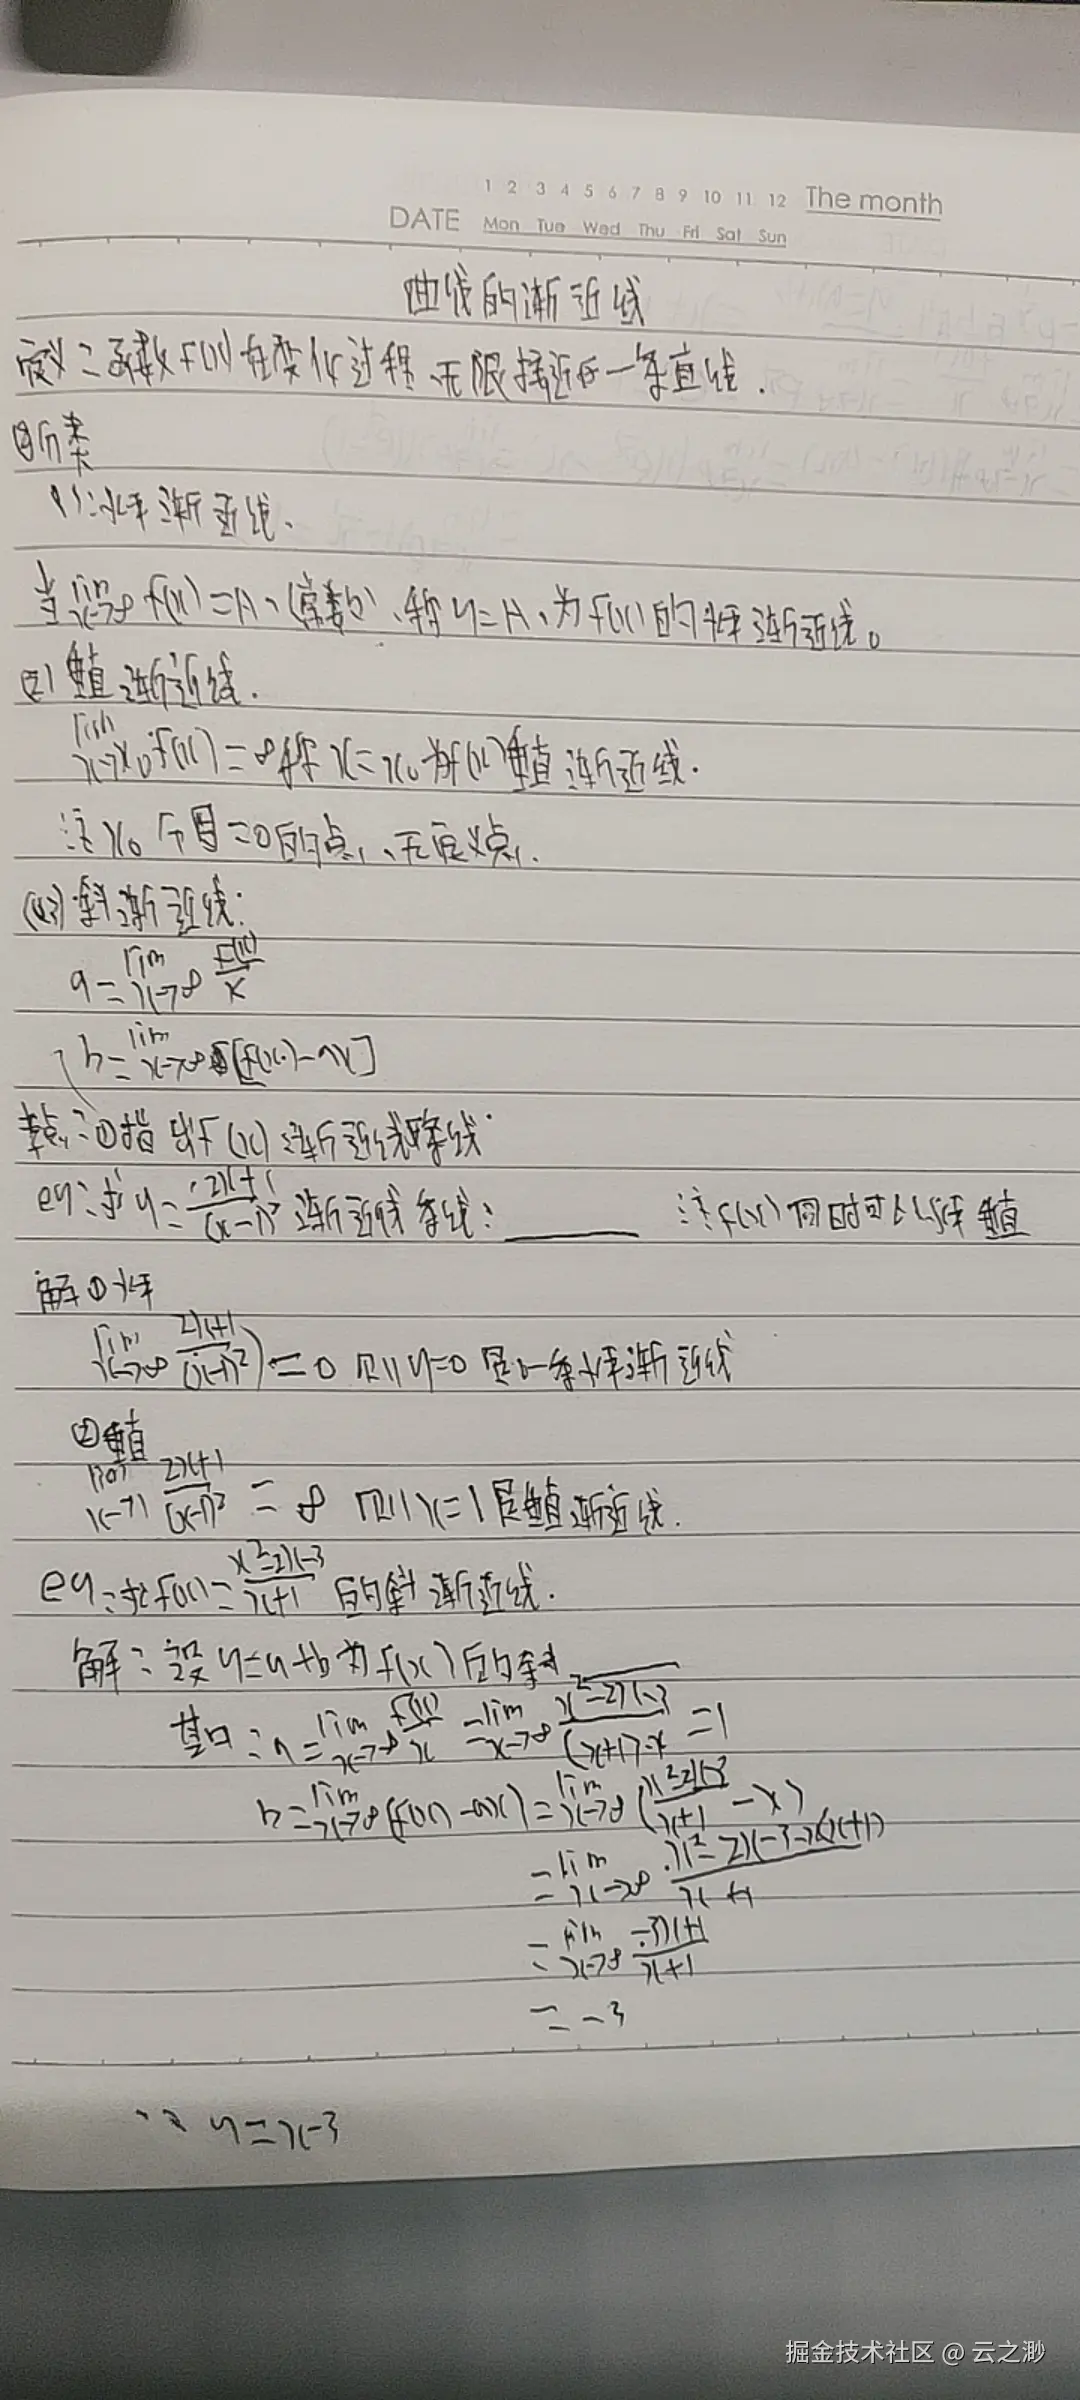 1 2 3 4 5 6 7 8 9 10 11 12 The month
DATE Mon Tue Wed Thu Fri Sat Sun
曲线的渐近线
定义：函数f(x)在变化过程、无限接近于一条直线.
分类
(1)水平渐近线、
当lim x→∞ f(x)=A、(常数)、称y=A、为f(x)的水平渐近线。
(2)垂直渐近线.
lim x→x₀ f(x)=∞称x=x₀为f(x)垂直渐近线.
注x₀分母=0的点、无定义点.
(3)斜渐近线:
a=lim x→∞ f(x)/x
b=lim x→∞[f(x)-ax]
考点:①指出f(x)渐近线条线
eg:求y=2x+1/(x-1)² 渐近线条线:______ 注f(x)同时可以水平垂直
解①水平
lim x→∞ 2x+1/(x-1)²=0 则y=0是一条水平渐近线
②垂直
lim x→1 2x+1/(x-1)²=∞ 则x=1是垂直渐近线.
eg:求f(x)=x²-2x-3/x+1的斜渐近线.
解:设y=a+b为f(x)的斜
其中:a=lim x→∞ f(x)/x=lim x→∞ x²-2x-3/(x+1)·x=1
b=lim x→∞(f(x)-ax)=lim x→∞(x²-2x-3/x+1-x)
=lim x→∞ x²-2x-3-x(x+1)/x+1
=lim x→∞ -3x+1/x+1
=-3
y=x-3
掘金技术社区 @ 云之渺